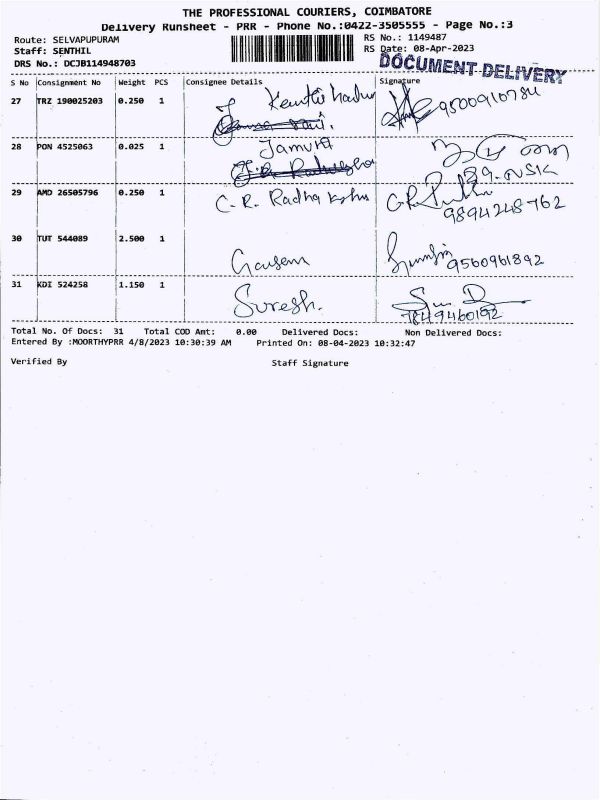 THE PROFESSIONAL COURIERS, COIMBATORE
Delivery Runsheet - PRR - Phone No.:0422-3505555 - Page No.:3
Route: SELVAPUPURAM
RS No.: 1149487
Staff: SENTHIL
RS Date: 08-Apr-2023
DRS No.: DCJB114948703
DOCUMENT DELIVERY
S No Consignment No Weight PCS Consignee Details Signature
27 TRZ 190025203 0.250 1
28 PON 4525063 0.025 1 Jamuna
29 AMD 26505796 0.250 1 C. R. Radha
9894248762
30 TUT 544089 2.500 1 9560961892
31 KDI 524258 1.150 1 Suresh.
7849460192
Total No. Of Docs: 31 Total COD Amt: 0.00 Delivered Docs: Non Delivered Docs:
Entered By :MOORTHYPRR 4/8/2023 10:30:39 AM Printed On: 08-04-2023 10:32:47
Verified By Staff Signature